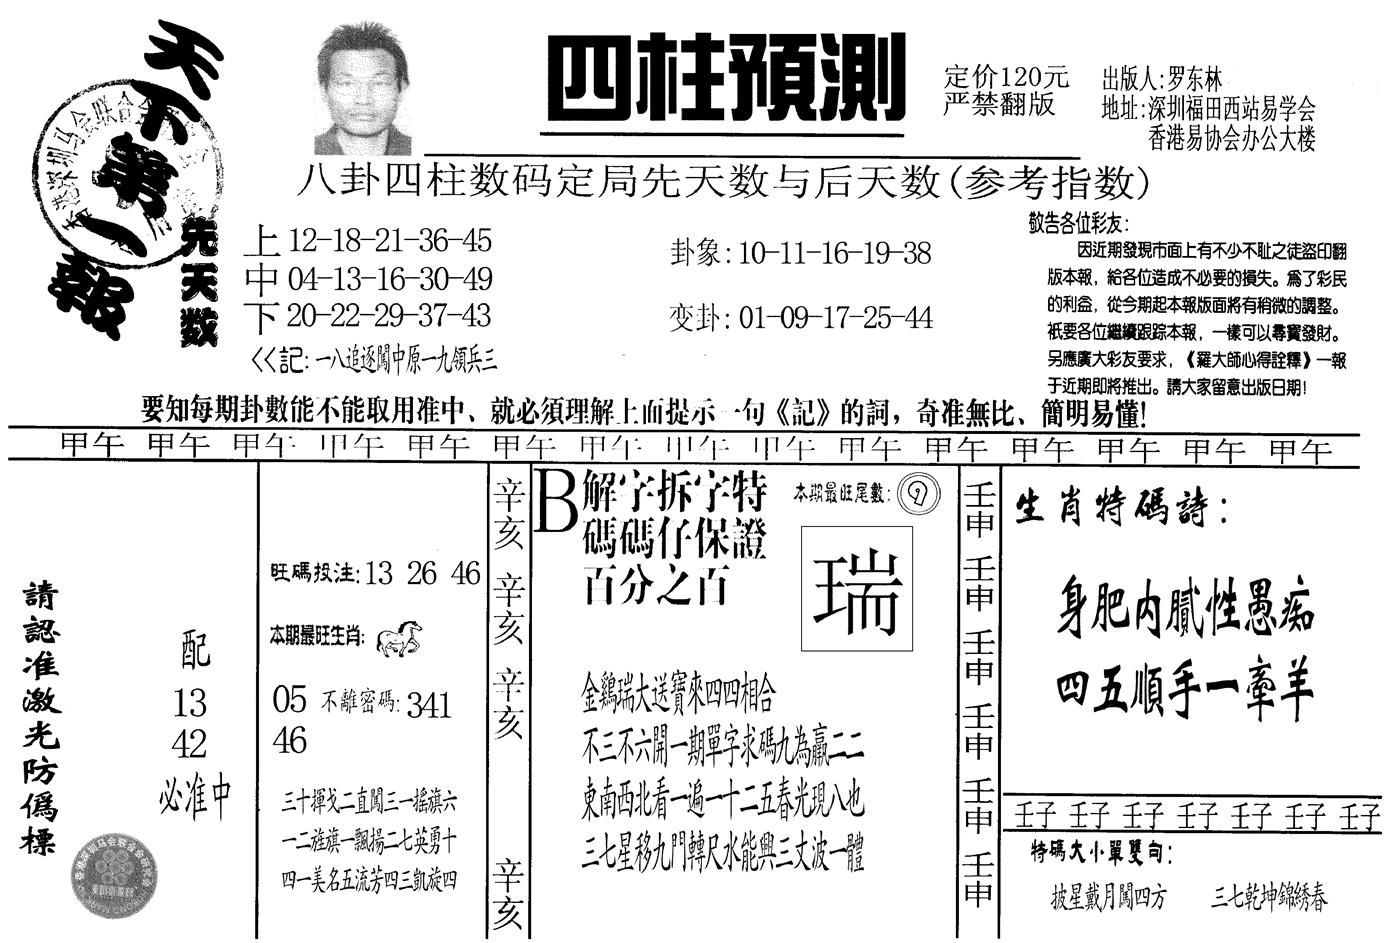 天下第一報
四柱預測
定价120元
严禁翻版
出版人:罗东林
地址:深圳福田西站易学会
香港易协会办公大楼
八卦四柱数码定局先天数与后天数(参考指数)
先天数
上 12-18-21-36-45
中 04-13-16-30-49
下 20-22-29-37-43
<<記: 一八追逐闖中原一九領兵三
卦象: 10-11-16-19-38
变卦: 01-09-17-25-44
敬告各位彩友:
因近期發現市面上有不少不耻之徒盗印翻
版本報，給各位造成不必要的損失。爲了彩民
的利益，從今期起本報版面將有稍微的調整。
衹要各位繼續跟踪本報，一樣可以尋寶發財。
另應廣大彩友要求，《羅大師心得詮釋》一報
于近期即將推出。請大家留意出版日期!
要知每期卦數能不能取用准中、就必須理解上面提示一句《記》的詞，奇准無比、簡明易懂!
甲午 甲午 甲午 甲午 甲午 甲午 甲午 甲午 甲午 甲午 甲午 甲午 甲午 甲午 甲午
請認准激光防僞標
配
13
42
必准中
旺碼投注: 13 26 46
本期最旺生肖:
05 不離密碼: 341
46
三十揮戈二直闖三一摇旗六
一二旌旗一飄揚二七英勇十
四一美名五流芳四三凱旋四
辛亥 辛亥 辛亥 辛亥
B
解字拆字特
碼碼仔保證
百分之百
本期最旺尾數: 9
瑞
金鷄瑞大送寶來四四相合
不三不六開一期單字求碼九為贏二二
東南西北看一遍一十二五春光現八也
三七星移九門轉尺水能興三丈波一體
壬申 壬申 壬申 壬申 壬申 壬申
生肖特碼詩:
身肥内膩性愚痴
四五順手一牽羊
壬子 壬子 壬子 壬子 壬子 壬子 壬子
特碼大小單雙句:
披星戴月闖四方 三七乾坤錦綉春